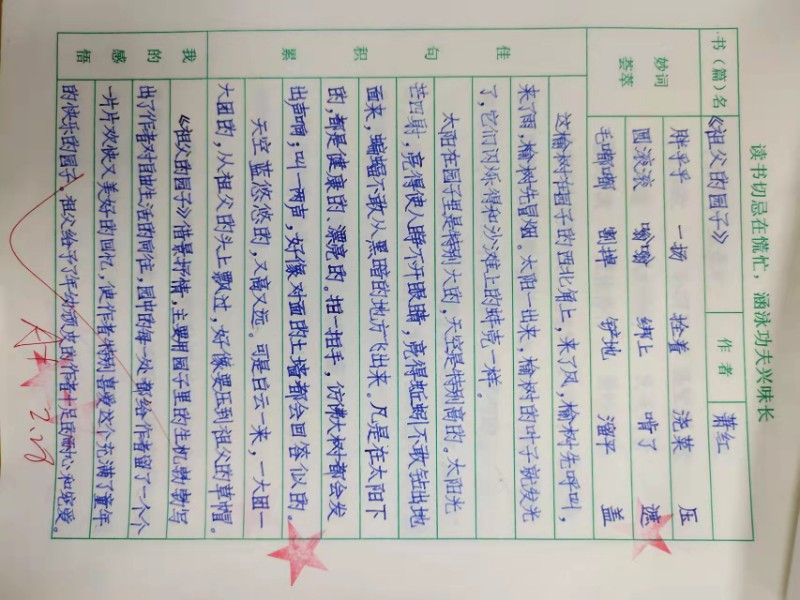 读书切忌在慌忙，涵泳功夫兴味长
书(篇)名 《祖父的园子》 作者 萧红
妙词荟萃
胖乎乎 一场 拴着 浇菜 压
圆滚滚 嗡嗡 绑上 啃了 滤
毛嘟嘟 割掉 铲地 溜平 盖
佳句积累
这榆树在园子的西北角上，来了风，榆树先呼叫，
来了雨，榆树先冒烟。太阳一出来，榆树的叶子就发光
了，它们闪烁得和沙滩上的蚌壳一样。
太阳在园子里是特别大的，天空是特别高的。太阳光
芒四射，亮得使人睁不开眼睛，亮得蚯蚓不敢钻出地
面来，蝙蝠不敢从黑暗的地方飞出来。凡是在太阳下
的，都是健康的、漂亮的。拍一拍手，仿佛大树都会发
出声响；叫一两声，好像对面的土墙都会回答似的。
天空蓝悠悠的，又高又远。可是白云一来，一大团一
大团的，从祖父的头上飘过，好像要压到祖父的草帽。
我的感悟
《祖父的园子》借景抒情，主要用园子里的生机勃勃写
出了作者对自由生活的向往，园中的每一处都给作者留了一个个
一片片欢快又美好的回忆，使作者特别喜爱这个充满了童年
的快乐的园子。祖父给予了年幼顽皮的作者十足的耐心和宠爱。
2.28